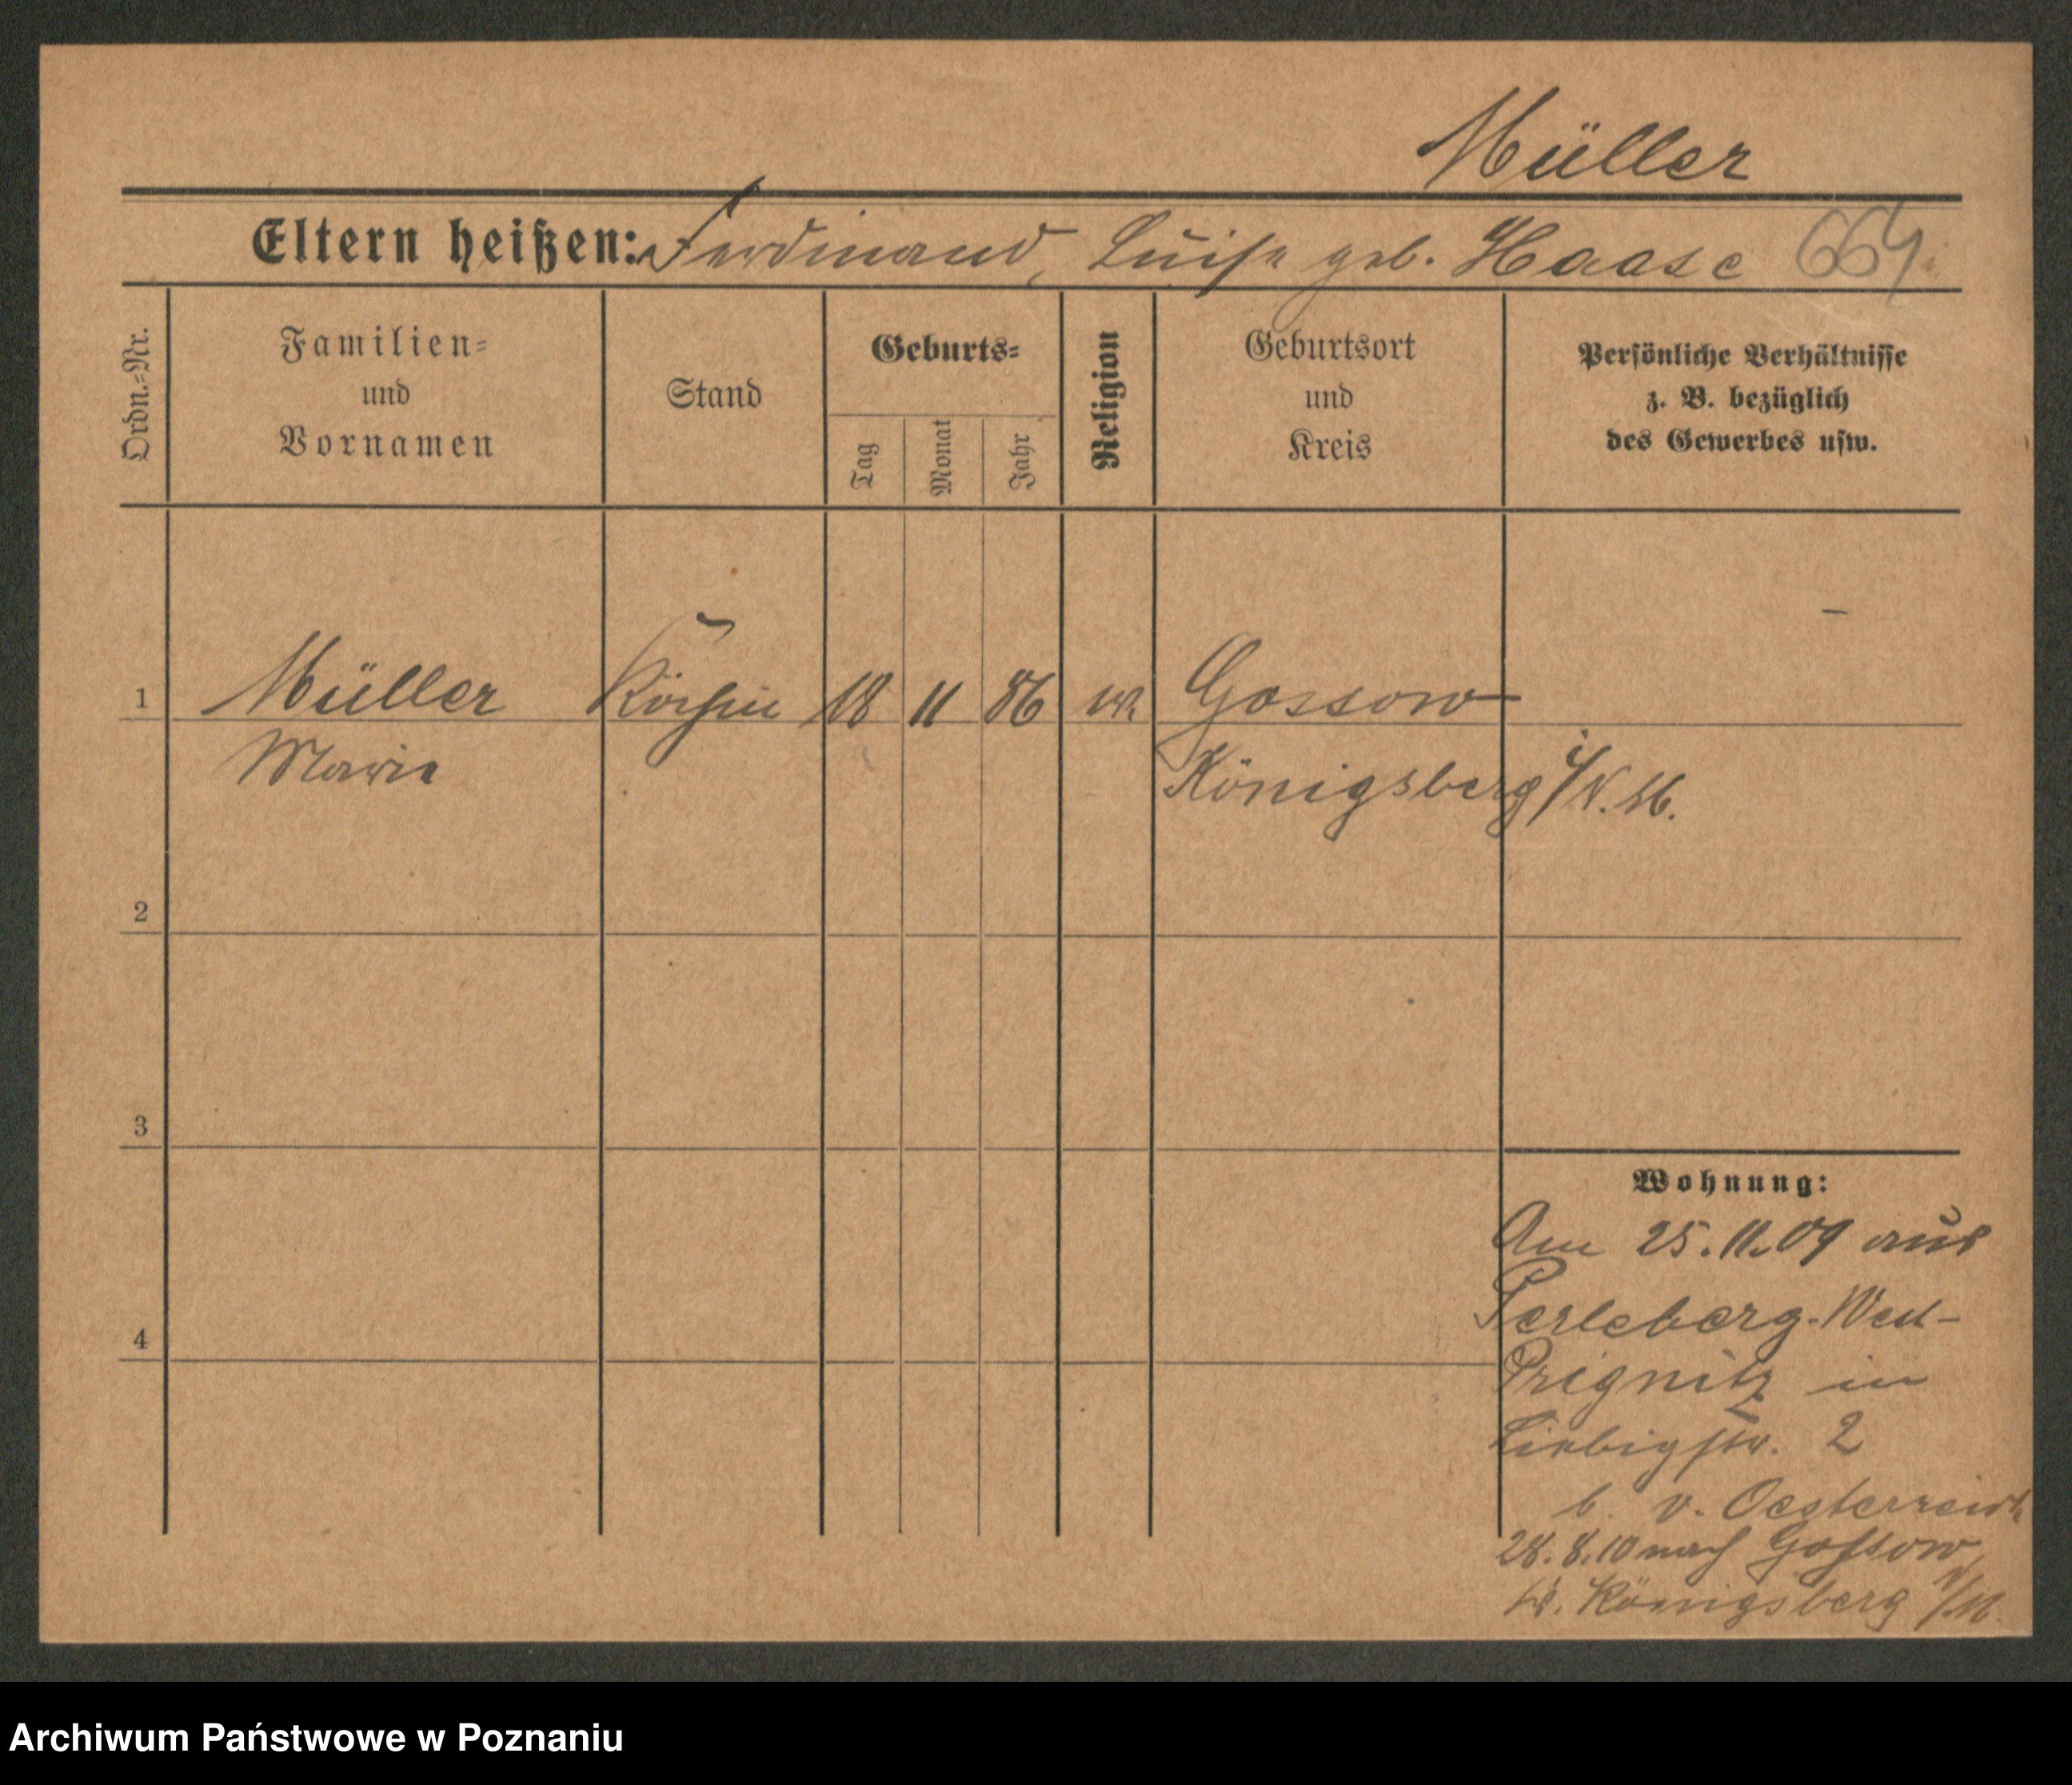 Müller
Eltern heißen: Ferdinand, Luise geb. Haase 664
Ordn.=Nr.
Familien=
und
Vornamen
Stand
Geburts=
Tag
Monat
Jahr
Religion
Geburtsort
und
Kreis
Persönliche Verhältnisse
z. B. bezüglich
des Gewerbes usw.
1 Müller Köchin 18 11 86 ev. Gossow –
Marie Königsberg i/N. M.
2
3
4
Wohnung:
Am 25.11.09 aus
Perleberg-West-
Prignitz in
Liebigstr. 2
b. v. Oesterreich
28.8.10 nach Gossow
Kr. Königsberg N/M.
Archiwum Państwowe w Poznaniu